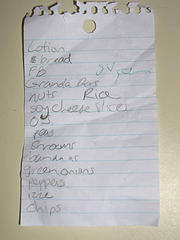 Lotion
bread
PB
Granola Bars
nuts Rice
soy cheese slices
OJ
peas
shrooms
green onions
peppers
chips